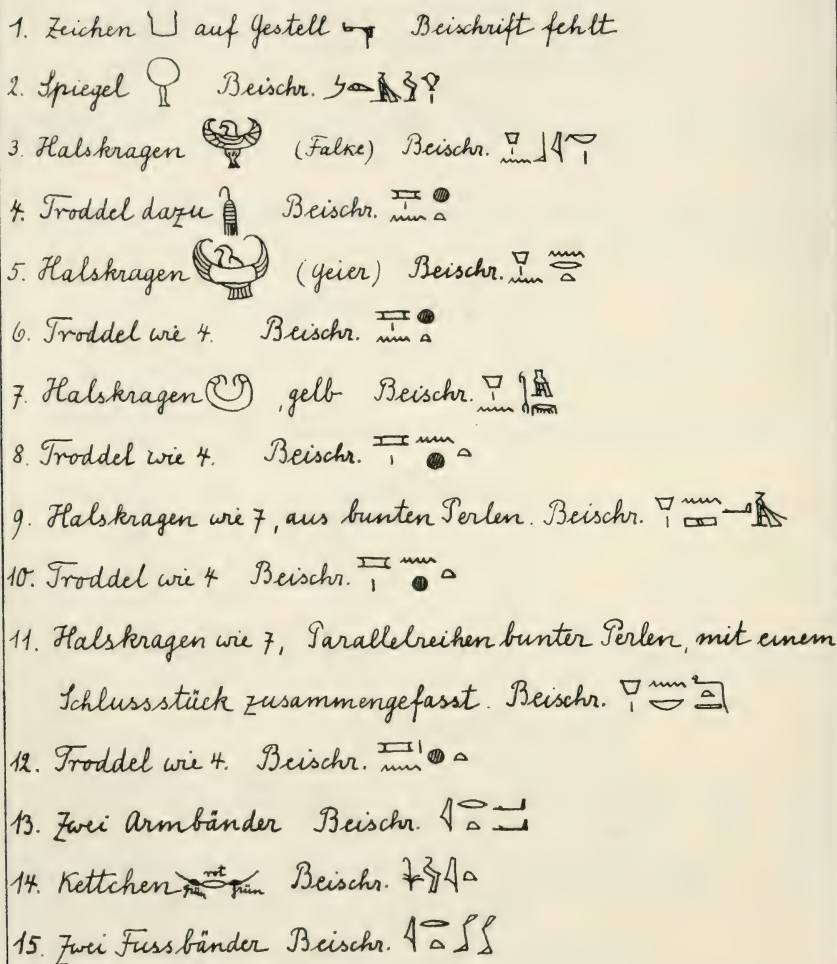 1. Zeichen auf Gestell Beischrift fehlt
2. Spiegel Beischr.
3. Halskragen (Falke) Beischr.
4. Troddel dazu Beischr.
5. Halskragen (Geier) Beischr.
6. Troddel wie 4. Beischr.
7. Halskragen , gelb Beischr.
8. Troddel wie 4. Beischr.
9. Halskragen wie 7, aus bunten Perlen. Beischr.
10. Troddel wie 4 Beischr.
11. Halskragen wie 7, Parallelreihen bunter Perlen, mit einem
Schlussstück zusammengefasst. Beischr.
12. Troddel wie 4. Beischr.
13. Zwei Armbänder Beischr.
14. Kettchen grün rot grün Beischr.
15. Zwei Fussbänder Beischr.